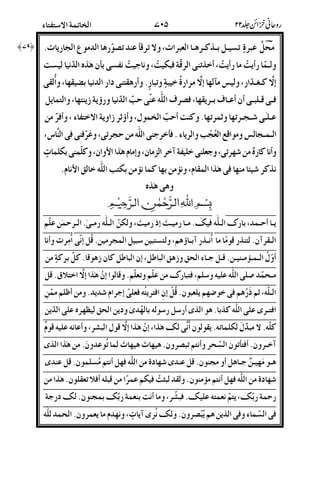 روحانی خزائن جلد۲۲ ۷۰۵ الخاتمة الاستفتاء
﴿۷۹﴾
مُحَلَّ عبرة تسيل بذكرها العبرات، ولا ترقأ عند تصوّرها الدموع الجاريات.
ولمّا رأيتُ ما رأيتُ، أخذتنى الرقّة فبكيتُ، وناجيتُ نفسى بأن هذه الدنيا ليست
إلّا كغدّار، وليس مآلها إلّا مرارة خيبة وتبارٍ. وأرهقتنى دار الدنيا بضيقها، وأُلقى
فى قلبى أن أعاف بريقها، فصرف اللّٰه عنّى حبّ الدنيا ورؤية زينتها، والتمايل
على شجرتها وثمرتها. وكنت أحبّ الخمول، وأوثر زاوية الاختفاء، وأفرّ من
المجالس ومواقع العُجب والرياء. فأخرجنى اللّٰه من حجرتى، وعرّفنى فى النّاس،
وأنا كارهٌ من شهرتى، وجعلنى خليفة آخر الزمان، وإمام هذا الأوان، وكلّمنى بكلمات
نذكر شيئا منها فى هذا المقام، ونؤمن بها كما نؤمن بكتب اللّٰه خالق الأنام.
وهى هذه
بسم اللّٰه الرّحمٰن الرّحيم
يا أحمد، بارك اللّٰه فيك. ما رميتَ إذ رميتَ، ولكنّ اللّٰه رمىٰ. الرحمٰن. علّم
القرآن. لتنذر قوما ما أُنذر آباؤهم، ولتستبين سبيل المجرمين. قل إنّى أُمرت وأنا
أوّل المؤمنين. قل جاء الحق وزهق الباطل، إن الباطل كان زهوقا. كلّ بركةٍ من
محمّد صلى اللّٰه عليه وسلم، فتبارك من علّم وتعلّم. وقالوا إنْ هذا إلّا اختلاق. قل
اللّٰه، ثم ذَرْهم فى خوضهم يلعبون. قل إن افتريتُه فعلىّ إجرام شديد. ومن أظلم ممّن
افترى على اللّٰه كذبا. هو الذى أرسل رسوله بالهدى ودين الحق ليظهره على الدين
كلّه. لا مبدّل لكلماته. يقولون أنّى لك هذا، إنْ هذا إلّا قول البشر، وأعانه عليه قوم
آخرون. أفتأتون السّحر وأنتم تبصرون. هيهات هيهات لما توعدون. من هذا الذى
هو مهين جاهل أو مجنون. قل عندى شهادة من اللّٰه فهل أنتم مسلمون. قل عندى
شهادة من اللّٰه فهل أنتم مؤمنون. ولقد لبثتُ فيكم عمرًا من قبله أفلا تعقلون. هذا من
رحمة ربّك، يتمّ نعمته عليك. فبشّر، وما أنت بنعمة ربّك بمجنون. لك درجة
فى السّماء وفى الذين هم يُبصرون. ولك نُرى آيات، ونهدم ما يعمرون. الحمد للّٰه